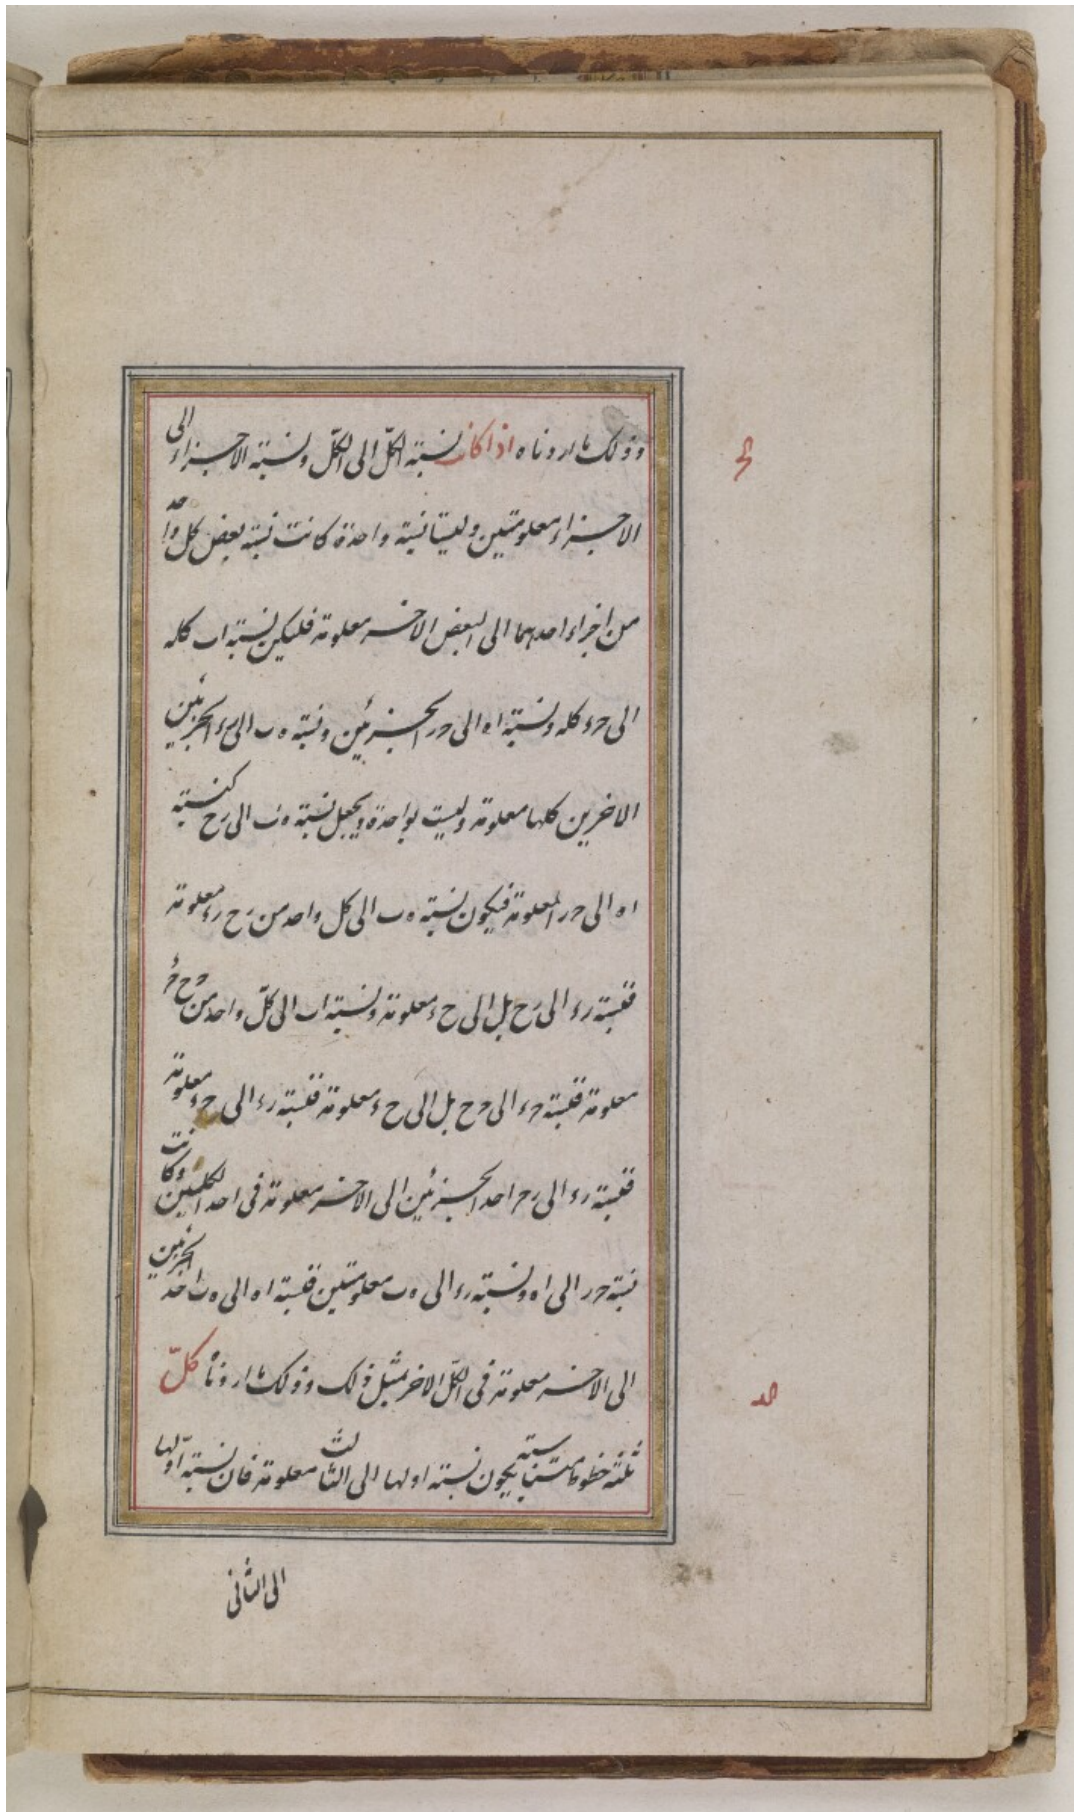 وذلك ما اردناه اذا كانت نسبة الكل الى الكل ونسبة الاجزاء الى
الاجزاء معلومتين وليستا نسبة واحدة كانت نسبة بعض كل واحد
من اجزاء احديهما الى البعض الاخر معلومة فليكن نسبة اب كله
الى حء كله ونسبة اه الى حر الجزئين ونسبة ه ب الى رء الجزئين
الاخرين كلها معلومة وليست بواحدة ويجعل نسبة ه ب الى رح كنسبة
اه الى حر المعلومة فيكون نسبة ه ب الى كل واحد من رح رء معلومة
فنسبة رء الى رح بل الى ح ء معلومة ونسبة اب الى كل واحد من حح حء
معلومة فنسبة حء الى حح بل الى ح ء معلومة فنسبة رء الى حء معلومة
فنسبة رء الى رح احد الجزئين الى الاخر معلومة فى احد الكلين وكانت
نسبة حر الى اه ونسبة رء الى ه ب معلومتين فنسبة اه الى ه ب احد الجزئين
الى الاخر معلومة فى الكل الاخر مثل ذلك وذلك ما اردناه كل
ثلثة خطوط متناسبة يكون نسبة اولها الى الثالث معلومة فان نسبة اولها
الى الثانى